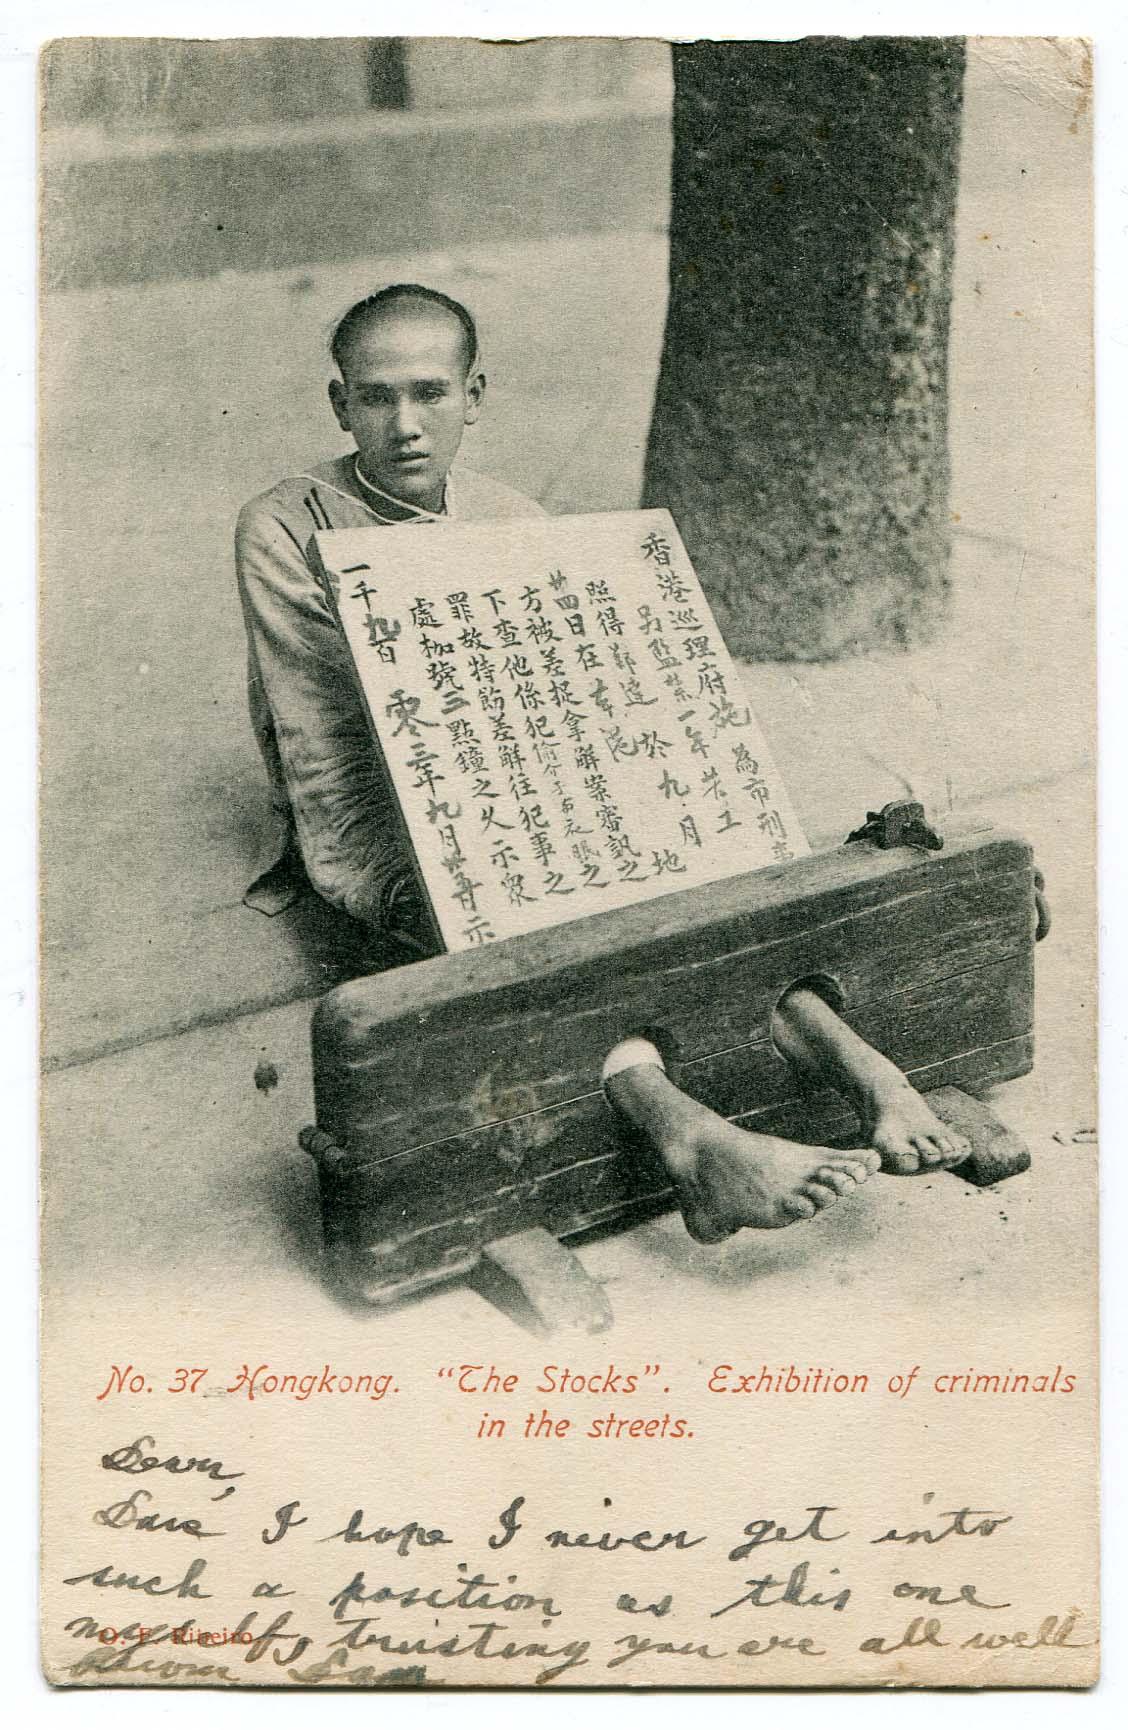 香港巡理府施 為市刑事
另監禁一年苦工
照得鄭達於九月
廿四日在 地
方被差捉拿解案審訊之
下查他係犯偷 衣 之
罪故特飭差解往犯事之
處枷號三點鐘之久示眾
一千九百零三年九月廿五日示
No. 37 Hongkong. "The Stocks". Exhibition of criminals
in the streets.
Dear,
Dave I hope I never get into
such a position as this one
myself, trusting you are all well
from Sam
O. F. Ribeiro